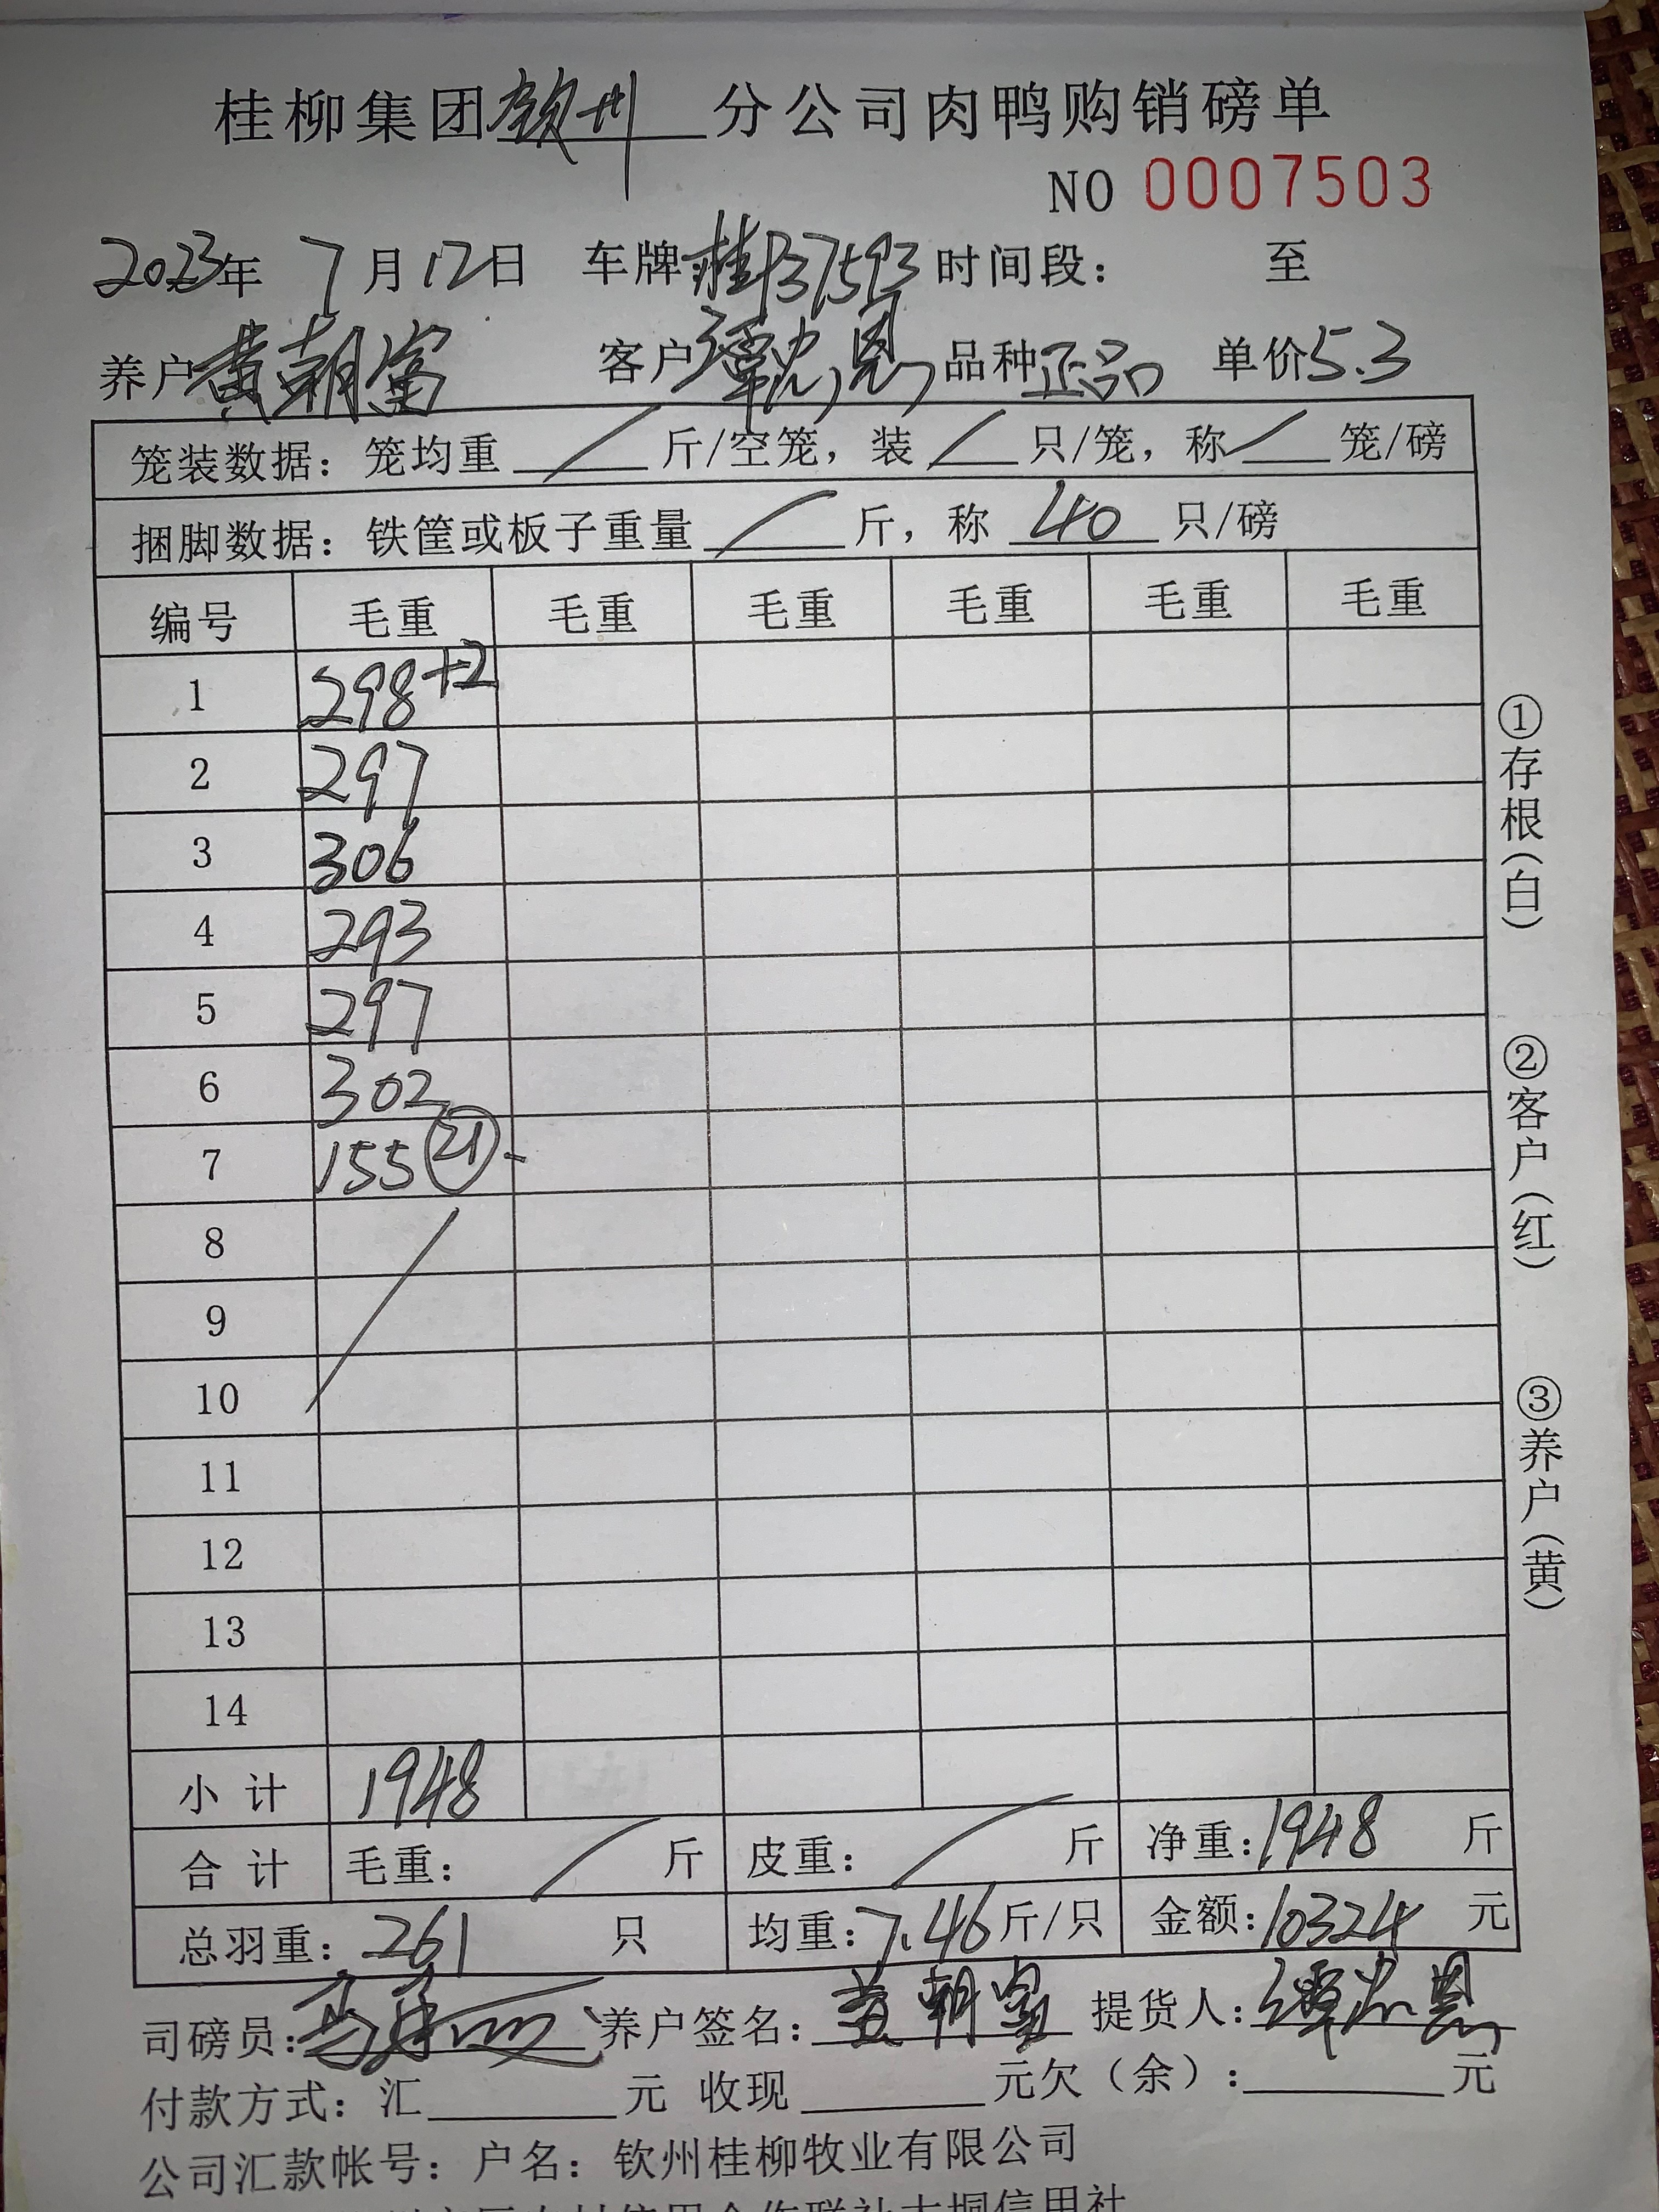 桂柳集团钦州分公司肉鸭购销磅单
NO 0007503
2023年 7月12日 车牌桂P37593 时间段： 至
养户黄朝富 客户谭忠恩 品种正品 单价5.3
笼装数据：笼均重 / 斤/空笼，装 / 只/笼，称 / 笼/磅
捆脚数据：铁筐或板子重量 / 斤，称 40 只/磅
编号 毛重 毛重 毛重 毛重 毛重 毛重
1 298+2
2 297
3 306
4 293
5 297
6 302
7 155 21
8
9
10
11
12
13
14
小计 1948
合计 毛重： / 斤 皮重： / 斤 净重：1948 斤
总羽重：261 只 均重：7.46斤/只 金额：10324 元
司磅员： 养户签名：黄朝富 提货人：谭忠恩
付款方式：汇 元 收现 元欠（余）： 元
公司汇款帐号：户名：钦州桂柳牧业有限公司
①存根（白）
②客户（红）
③养户（黄）